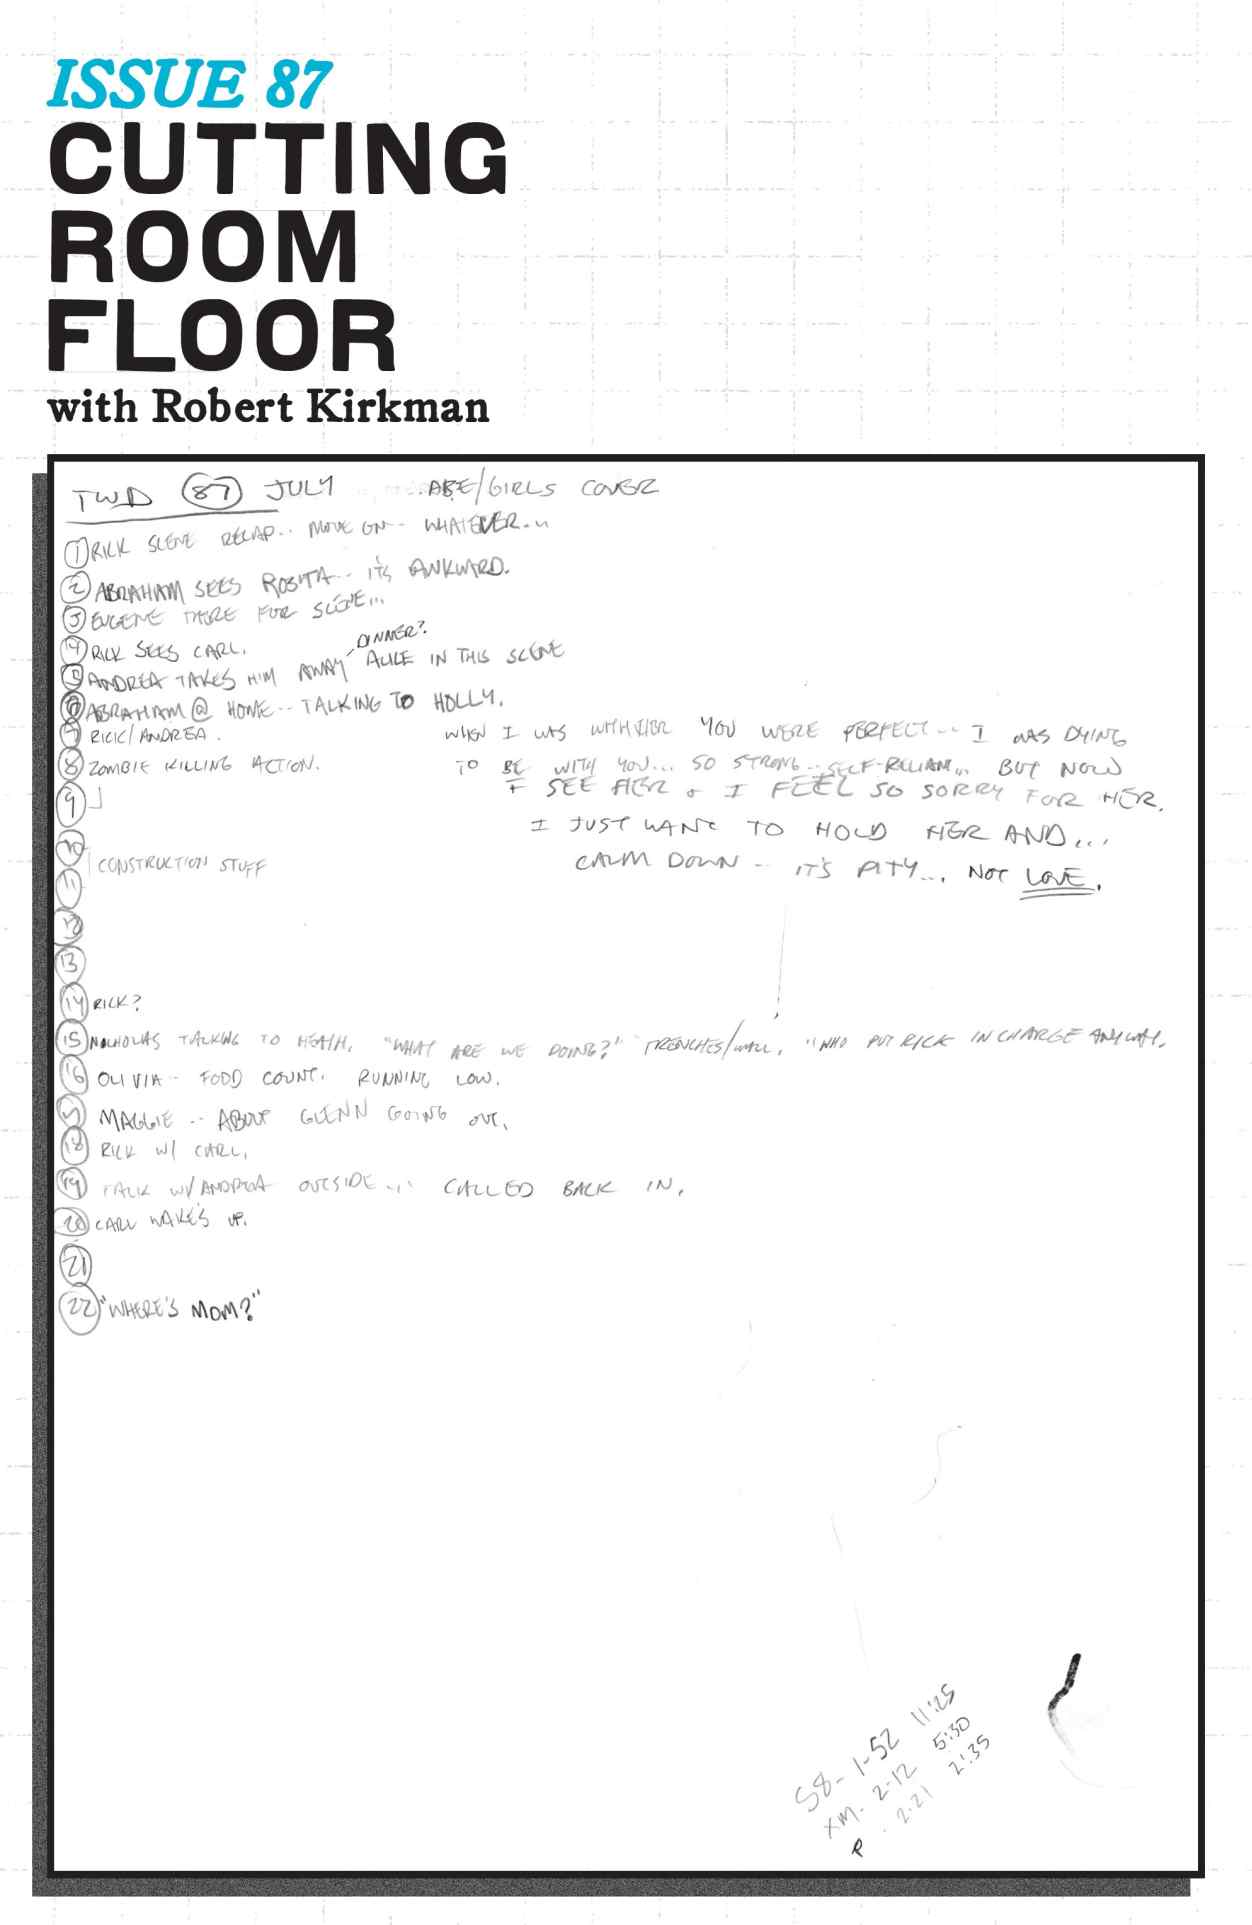 ISSUE 87
CUTTING
ROOM
FLOOR
with Robert Kirkman
TWD 87 JULY ABE/GIRLS COVER
1 RICK SCENE RECAP... MOVE ON... WHATEVER...
2 ABRAHAM SEES ROSITA... IT'S AWKWARD.
3 EUGENE THERE FOR SCENE...
4 RICK SEES CARL.
DINNER?
5 ANDREA TAKES HIM AWAY ALICE IN THIS SCENE
6 ABRAHAM @ HOME... TALKING TO HOLLY.
7 RICK/ANDREA.
WHEN I WAS WITH HER YOU WERE PERFECT... I WAS DYING
8 ZOMBIE KILLING ACTION.
TO BE WITH YOU... SO STRONG... SELF-RELIANT... BUT NOW
9
I SEE HER & I FEEL SO SORRY FOR HER.
I JUST WANT TO HOLD HER AND...
10
CONSTRUCTION STUFF
CALM DOWN... IT'S PITY... NOT LOVE.
11
12
13
14 RICK?
15 NICHOLAS TALKING TO HEATH. "WHAT ARE WE DOING?" TRENCHES/WALL. "WHO PUT RICK IN CHARGE ANYWAY.
16 OLIVIA... FOOD COUNT. RUNNING LOW.
17 MAGGIE... ABOUT GLENN GOING OUT.
18 RICK W/ CARL.
19 TALK W/ANDREA OUTSIDE... CALLED BACK IN.
20 CARL WAKES UP.
21
22 "WHERE'S MOM?"
58- 1-52 11:25
XM. 2-12 5:30
R . 2:21 2:35